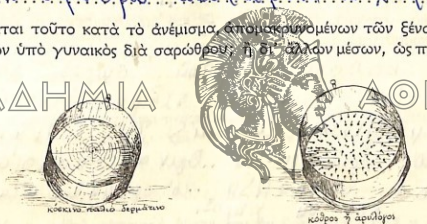 ται τοῦτο κατὰ τὸ ἀνέμισμα, ἀπομακρυνομένων τῶν ξένο
ν ὑπὸ γυναικὸς διὰ σαρώθρου; ἢ δι' ἄλλων μέσων, ὡς π
ΑΔΗΜΙΑ ΑΘΗ
κοσκινο παλιό δερμάτινο
κόθρος ἢ ἀρυλόγος